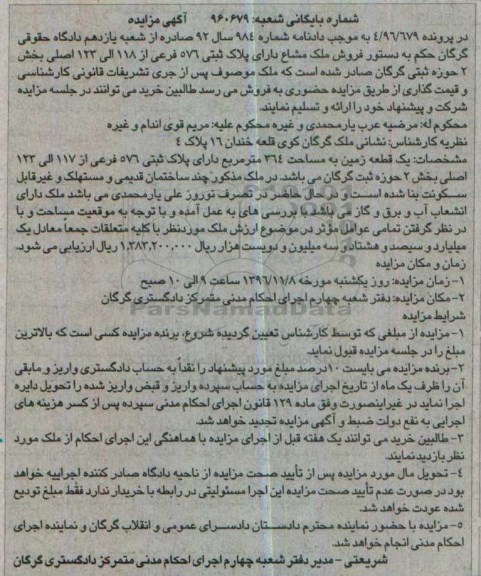 شماره بایگانی شعبه: ۹۶۰۶۷۹ آگهی مزایده
در پرونده ۴/۹۶/۶۷۹ به موجب دادنامه شماره ۹۸۴ سال ۹۲ صادره از شعبه یازدهم دادگاه حقوقی
گرگان حکم به دستور فروش ملک مشاع دارای پلاک ثبتی ۵۷۶ فرعی از ۱۱۸ الی ۱۲۳ اصلی بخش
۲ حوزه ثبتی گرگان صادر شده است که ملک موصوف پس از جری تشریفات قانونی کارشناسی
و قیمت گذاری از طریق مزایده حضوری به فروش می رسد طالبین خرید می توانند در جلسه مزایده
شرکت و پیشنهاد خود را ارائه و تسلیم نمایند.
محکوم له: مرضیه عرب یارمحمدی و غیره محکوم علیه: مریم قوی اندام و غیره
نظریه کارشناس: نشانی ملک گرگان کوی قلعه خندان ۱۶ پلاک ۴
مشخصات: یک قطعه زمین به مساحت ۳۶۴ مترمربع دارای پلاک ثبتی ۵۷۶ فرعی از ۱۱۷ الی ۱۲۳
اصلی بخش ۲ حوزه ثبت گرگان می باشد. در ملک مذکور چند ساختمان قدیمی و مستهلک و غیرقابل
سکونت بنا شده است و در حال حاضر در تصرف نوروز علی یارمحمدی می باشد ملک دارای
انشعاب آب و برق و گاز می باشد با بررسی های به عمل آمده و با توجه به موقعیت مساحت و با
در نظر گرفتن تمامی عوامل مؤثر در موضوع ارزش ملک موردنظر با کلیه متعلقات جمعاً معادل یک
میلیارد و سیصد و هشتاد و سه میلیون و دویست هزار ریال ۱,۳۸۳,۲۰۰,۰۰۰ ریال ارزیابی می شود.
زمان و مکان مزایده
۱-زمان مزایده: روز یکشنبه مورخه ۱۳۹۶/۱۱/۸ ساعت ۹ الی ۱۰ صبح
۲-مکان مزایده: دفتر شعبه چهارم اجرای احکام مدنی متمرکز دادگستری گرگان
شرایط مزایده
۱-مزایده از مبلغی که توسط کارشناس تعیین گردیده شروع، برنده مزایده کسی است که بالاترین
مبلغ را در جلسه مزایده قبول نماید.
۲-برنده مزایده می بایست ۱۰درصد مبلغ مورد پیشنهاد را نقداً به حساب دادگستری واریز و مابقی
آن را ظرف یک ماه از تاریخ اجرای مزایده به حساب سپرده واریز و قبض واریز شده را تحویل دایره
اجرا نماید در غیراینصورت وفق ماده ۱۲۹ قانون اجرای احکام مدنی سپرده پس از کسر هزینه های
اجرایی به نفع دولت ضبط و آگهی مزایده تجدید خواهد شد.
۳- طالبین خرید می توانند یک هفته قبل از اجرای مزایده با هماهنگی این اجرای احکام از ملک مورد
نظر بازدید نمایند.
۴- تحویل مال مورد مزایده پس از تأیید صحت مزایده از ناحیه دادگاه صادر کننده اجراییه خواهد
بود در صورت عدم تأیید صحت مزایده این اجرا مسئولیتی در رابطه با خریدار ندارد فقط مبلغ تودیع
شده عودت خواهد شد.
۵-مزایده با حضور نماینده محترم دادستان دادسرای عمومی و انقلاب گرگان و نماینده اجرای
احکام مدنی انجام خواهد شد.
شریعتی - مدیر دفتر شعبه چهارم اجرای احکام مدنی متمرکز دادگستری گرگان
ParsNamadData